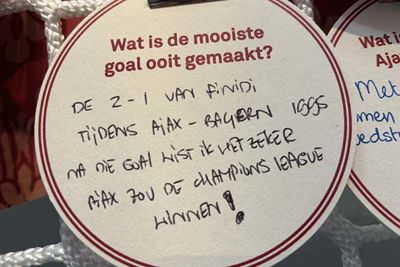 Wat is de mooiste
goal ooit gemaakt?
DE 2-1 VAN FINIDI
TIJDENS AJAX - BAYERN 1995
NA DIE GOAL WIST IK HET ZEKER
AJAX ZOU DE CHAMPIONS LEAGUE
WINNEN!
Wat i
Aja
Met
men
edst